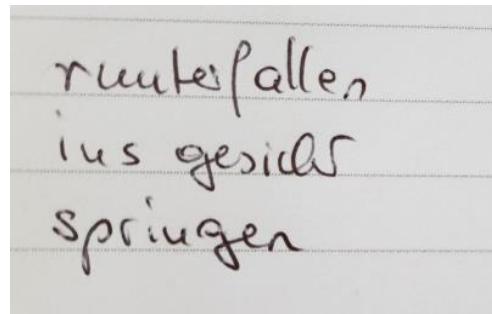 runterfallen
ins gesicht
springen